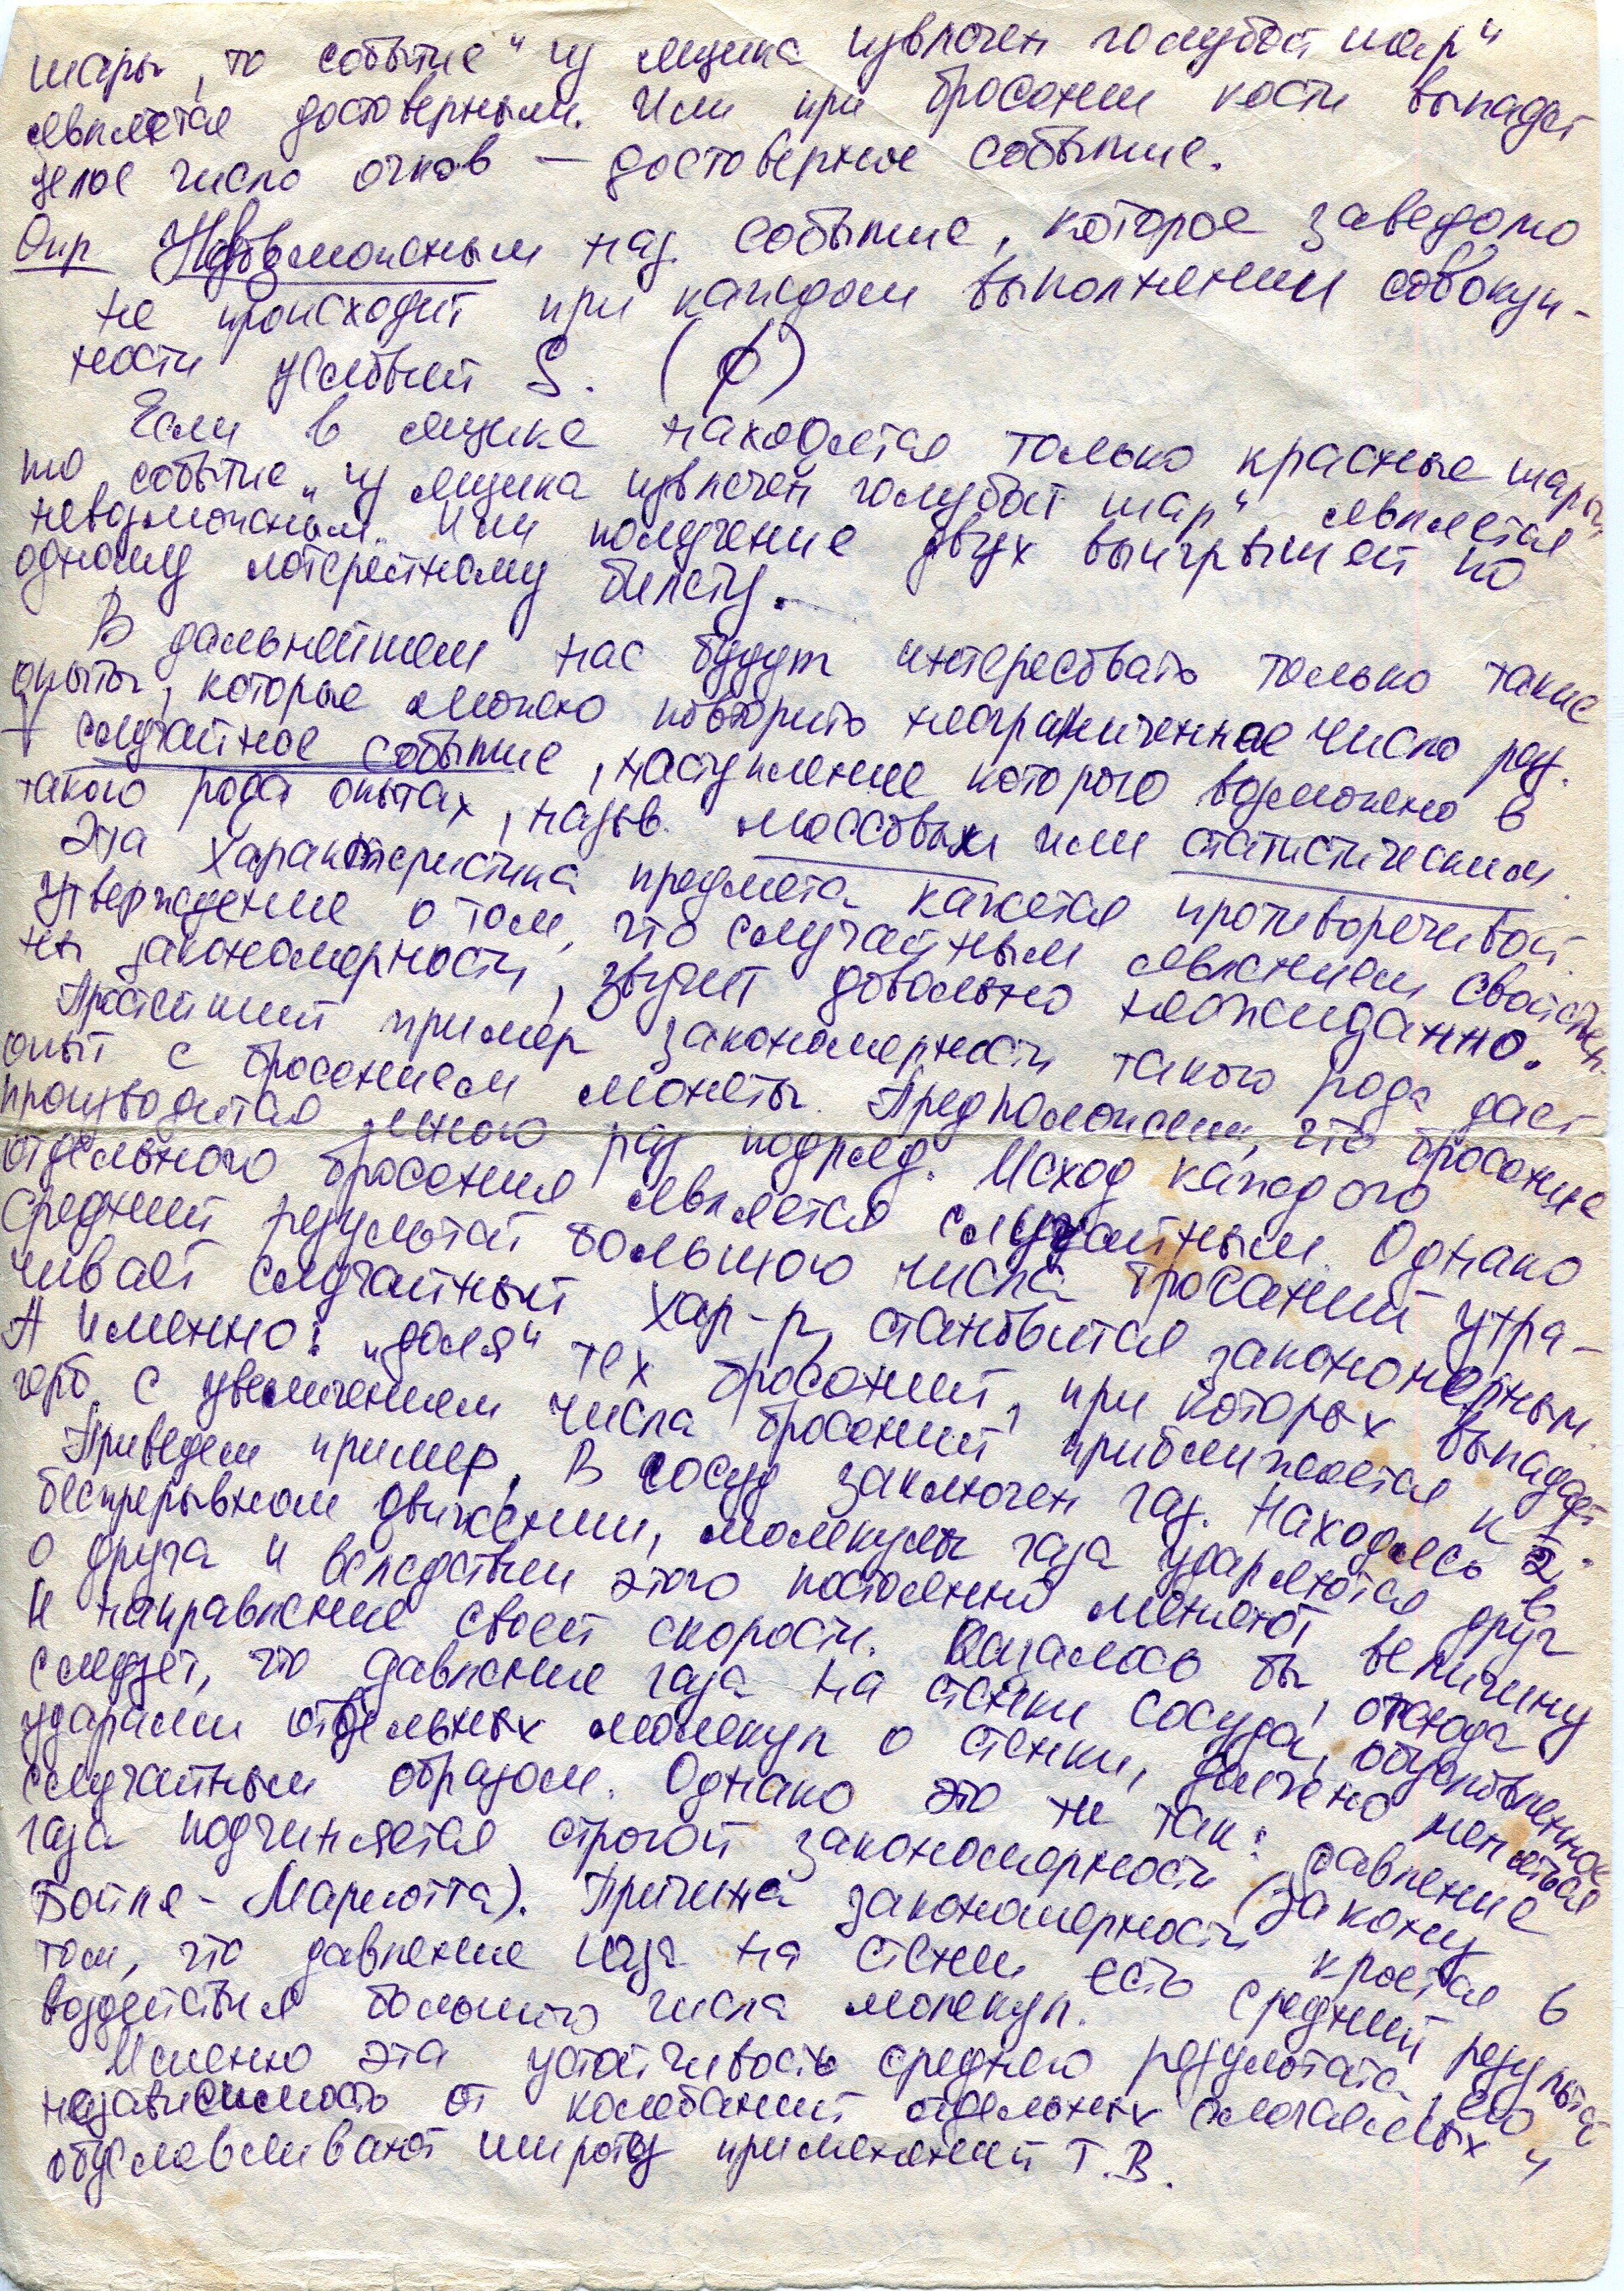 шары, то событие "из ящика извлечен голубой шар"
является достоверным. Или при бросании кости выпадет
целое число очков — достоверное событие.
Опр Невозможным наз. событие, которое заведомо
не происходит при каждом выполнении совокуп-
ности условий S. (∅)
Если в ящике находятся только красные шары,
то событие „из ящика извлечен голубой шар" является
невозможным. Или получение двух выигрышей по
одному лотерейному билету.
В дальнейшем нас будут интересовать только такие
опыты, которые можно повторить неограниченное число раз.
случайное событие, наступление которого возможно в
такого рода опытах, назыв. массовым или статистическим.
Эта характеристика предмета кажется противоречивой.
Утверждение о том, что случайным явлениям свойствен-
ны закономерности, звучит довольно неожиданно.
Простейший пример закономерности такого рода дает
опыт с бросанием монеты. Предположим, что бросание
производится много раз подряд. Исход каждого
отдельного бросания является случайным. Однако
средний результат большого числа бросаний утра-
чивает случайный хар-р, становится закономерным.
А именно: „доля" тех бросаний, при которых выпадает
герб, с увеличением числа бросаний приближается к 1/2.
Приведем пример. В сосуд заключен газ. Находясь в
беспрерывном движении, молекулы газа ударяются друг
о друга и вследствии этого постоянно меняют величину
и направление своей скорости. Казалось бы, отсюда
следует, что давление газа на стенки сосуда, обусловленное
ударами отдельных молекул о стенки, должно меняться
случайным образом. Однако это не так: давление
газа подчиняется строгой закономерности (закону
Бойля - Мариотта). Причина закономерности кроется в
том, что давление газа на стенки есть средний результат
воздействия большого числа молекул.
Именно эта устойчивость среднего результата, его
независимость от колебаний отдельных слагаемых и
обуславливают широту применений Т.В.